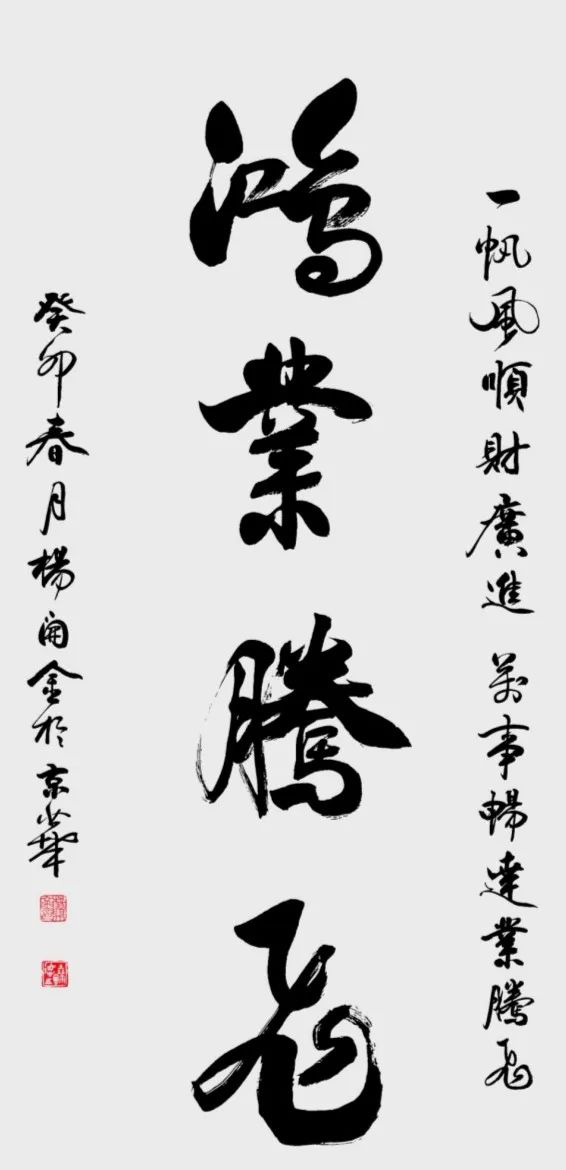 一帆風順財廣進 萬事暢達業騰飛
鴻業騰飛
癸卯春月楊開金於京華